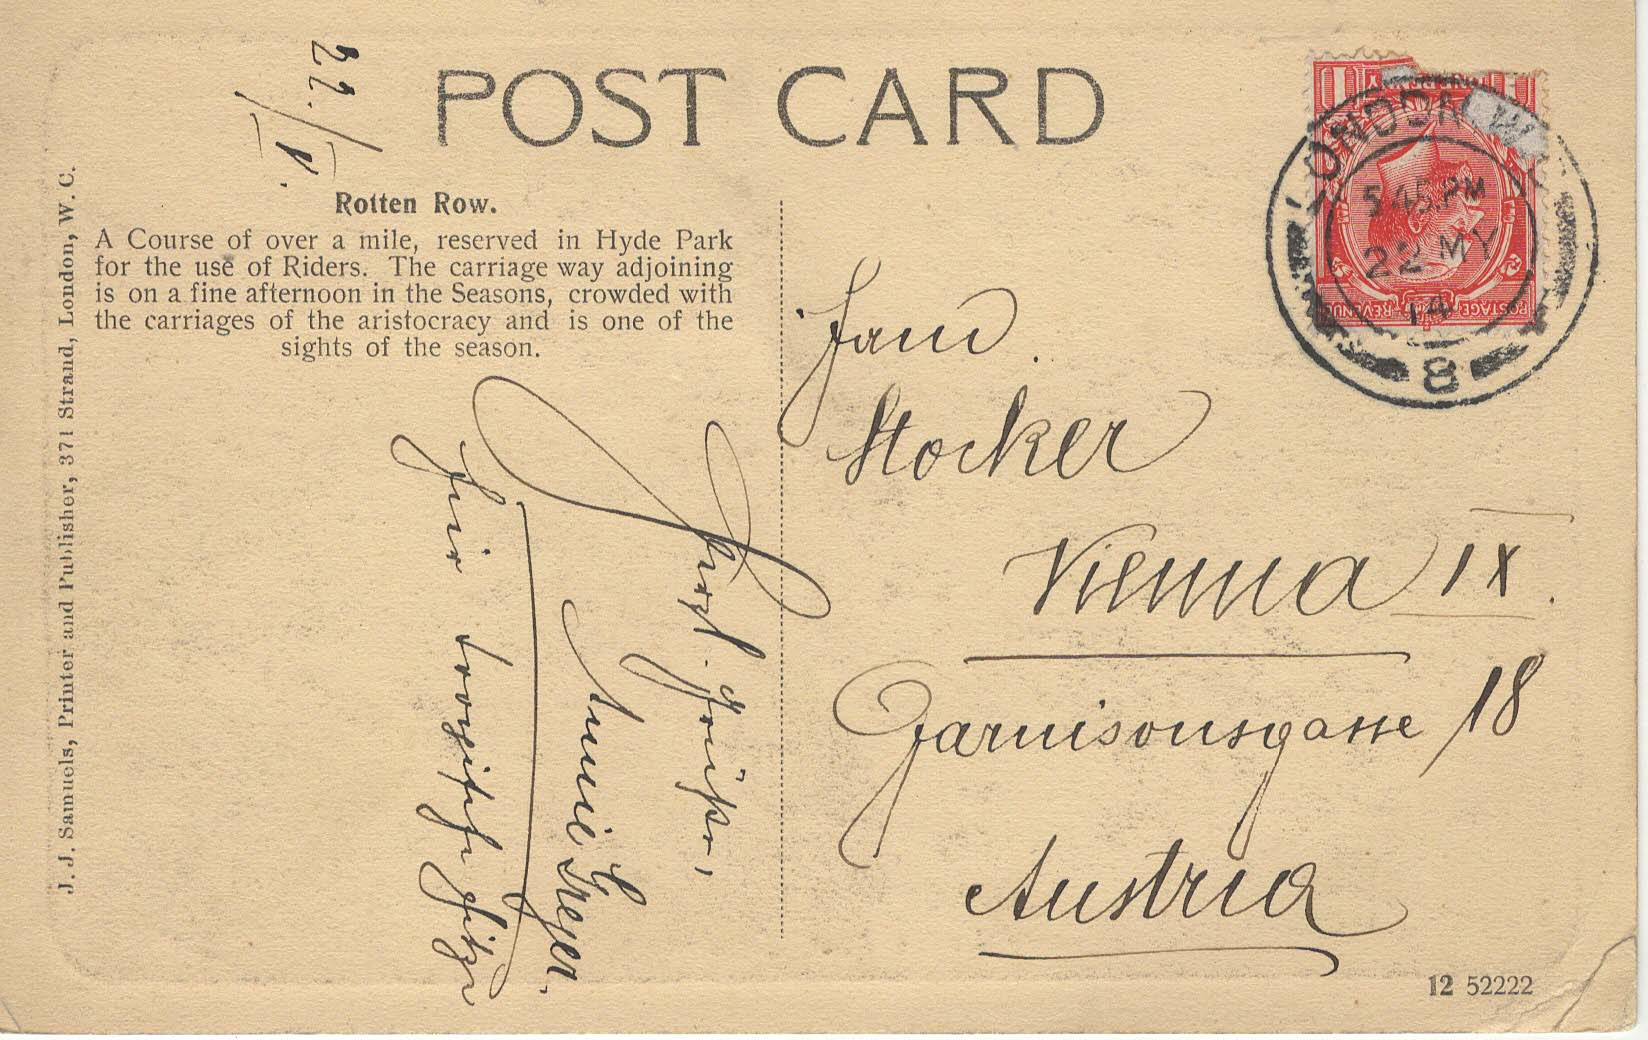 POST CARD
22./V.
Rotten Row.
A Course of over a mile, reserved in Hyde Park
for the use of Riders. The carriage way adjoining
is on a fine afternoon in the Seasons, crowded with
the carriages of the aristocracy and is one of the
sights of the season.
J. J. Samuels, Printer and Publisher, 371 Strand, London, W. C.
LONDON W
5.45 PM
22 MY
14
8
POSTAGE REVENUE
Frau
Stocker
Vienna IX.
Garnisonsgasse 18
Austria
Herzl. Grüße,
Annie Greger.
Hier tropische Hitze
12 52222